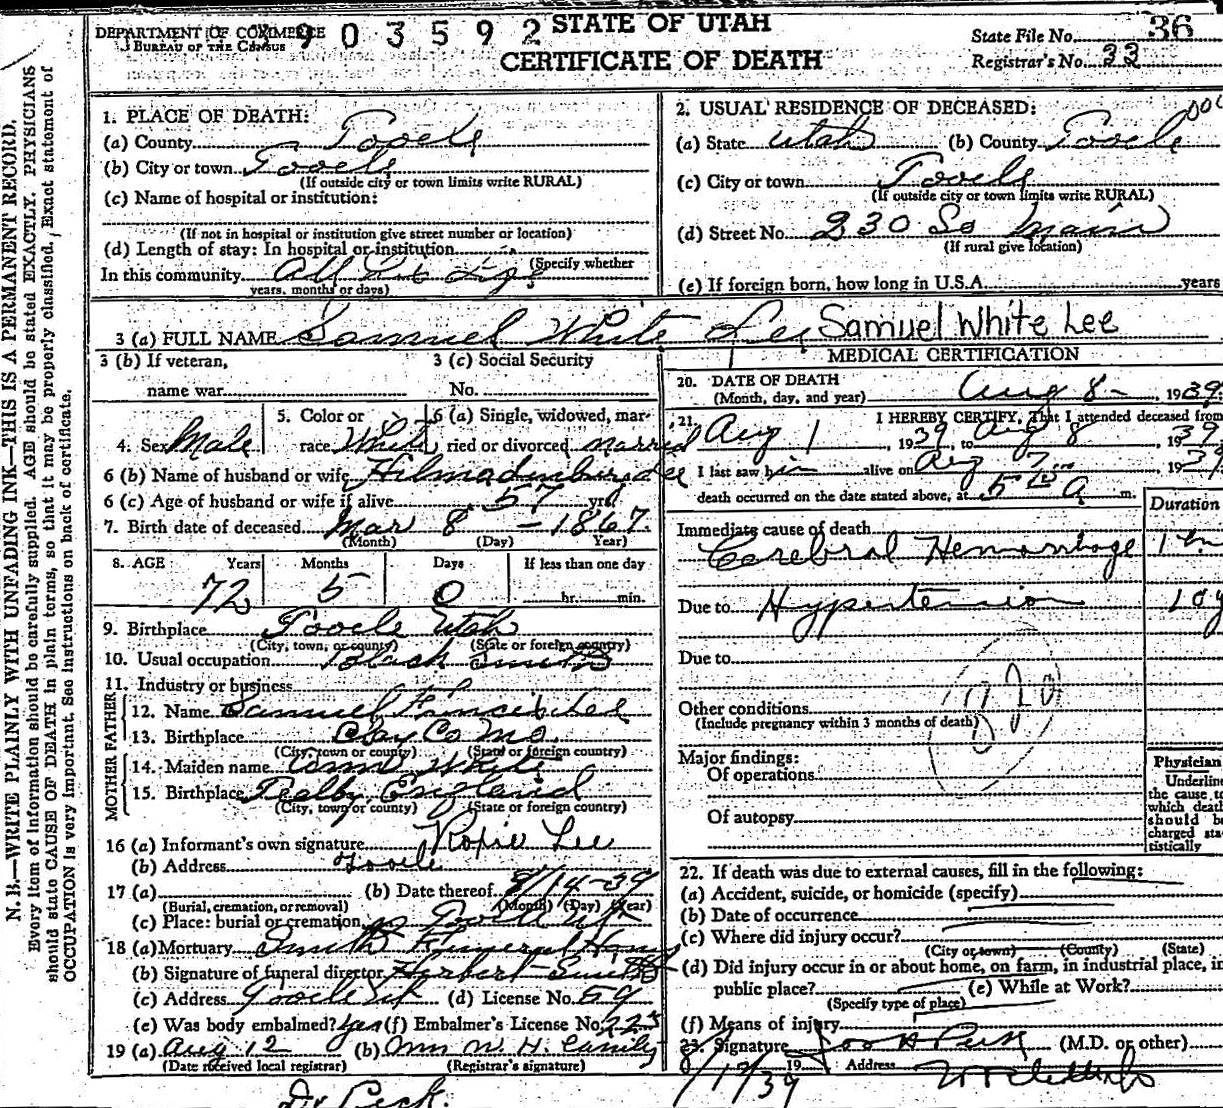 DEPARTMENT OF COMMERCE
BUREAU OF THE CENSUS
903592
STATE OF UTAH
CERTIFICATE OF DEATH
State File No. 36
Registrar's No. 33
N. B.—WRITE PLAINLY WITH UNFADING INK—THIS IS A PERMANENT RECORD.
Every item of information should be carefully supplied. AGE should be stated EXACTLY. PHYSICIANS
should state CAUSE OF DEATH in plain terms, so that it may be properly classified. Exact statement of
OCCUPATION is very important. See instructions on back of certificate.
1. PLACE OF DEATH:
(a) County Tooele
(b) City or town Tooele
(If outside city or town limits write RURAL)
(c) Name of hospital or institution:
(If not in hospital or institution give street number or location)
(d) Length of stay: In hospital or institution
(Specify whether
In this community All his Life
years, months or days)
2. USUAL RESIDENCE OF DECEASED:
(a) State Utah (b) County Tooele
(c) City or town Tooele
(If outside city or town limits write RURAL)
(d) Street No. 230 So Main
(If rural give location)
(e) If foreign born, how long in U.S.A. years
3 (a) FULL NAME Samuel White Lee Samuel White Lee
3 (b) If veteran, 3 (c) Social Security
name war No.
4. Sex Male
5. Color or
race White
6 (a) Single, widowed, mar-
ried or divorced married
6 (b) Name of husband or wife Lee
6 (c) Age of husband or wife if alive 57 yrs
7. Birth date of deceased Mar 8 - 1867
(Month) (Day) Year)
8. AGE Years Months Days If less than one day
72 5 0 hr. min.
9. Birthplace Tooele Utah
(City, town, or county) (State or foreign country)
10. Usual occupation Black Smith
11. Industry or business
FATHER
12. Name Samuel Francis Lee
13. Birthplace Clay Co Mo.
(City, town or county) (State or foreign country)
MOTHER
14. Maiden name White
15. Birthplace England
(City, town or county) (State or foreign country)
16 (a) Informant's own signature Lee
(b) Address Tooele
17 (a) (b) Date thereof 8/14-39
(Burial, cremation, or removal) (Month) (Day) (Year)
(c) Place: burial or cremation Tooele Ut
18 (a) Mortuary Smith Funeral Home
(b) Signature of funeral director Herbert Smith
(c) Address Tooele Ut (d) License No. 59
(e) Was body embalmed? Yes (f) Embalmer's License No. 225
19 (a) Aug 12 (b) W. H.
(Date received local registrar) (Registrar's signature)
Dr Peck.
MEDICAL CERTIFICATION
20. DATE OF DEATH
(Month, day, and year) Aug 8- 1939
21. I HEREBY CERTIFY, That I attended deceased from
Aug 1 1939, to Aug 8, 1939
I last saw him alive on Aug 7 1939
death occurred on the date stated above, at 5 A m.
Duration
Immediate cause of death
Cerebral Hemorrhage
Due to Hypertension 10 y
Due to
Other conditions
(Include pregnancy within 3 months of death)
Major findings:
Of operations
Of autopsy
Physician
Underline
the cause to
which death
should be
charged sta-
tistically
22. If death was due to external causes, fill in the following:
(a) Accident, suicide, or homicide (specify)
(b) Date of occurrence
(c) Where did injury occur?
(City or town) (County) (State)
(d) Did injury occur in or about home, on farm, in industrial place, in
public place? (e) While at Work?
(Specify type of place)
(f) Means of injury
23. Signature Peck (M.D. or other)
19 Address